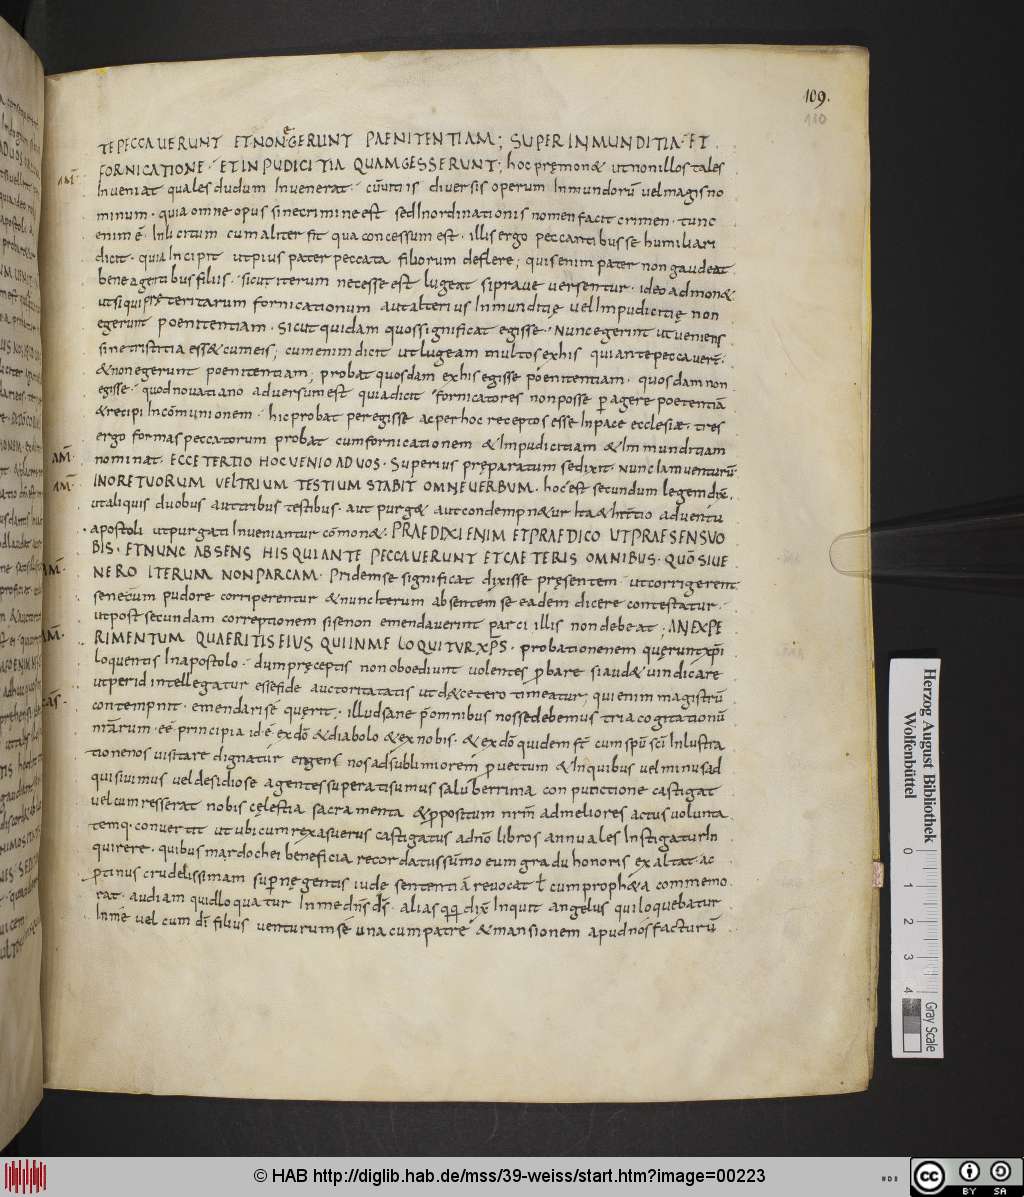 109.
110
TE PECCAVERUNT ET NON EGERUNT PAENITENTIAM; SUPER INMUNDITIA · ET
FORNICATIONE · ET INPUDICITIA QUAM GESSERUNT; hoc pręmon& ut non illos tales
Inveniat quales dudum Invenerat · cū vitiis diversis operum Inmundorū vel magis no
minum · quia omne opus sine crimine est sed Inordinationis nomen facit crimen · tunc
enim ē · Inlicitum cum aliter fit qua concessum est · illis ergo peccantibus se humiliari
dicit · quia Incipit ut pius pater peccata filiorum deflere; quis enim pater non gaudeat
bene agentibus filiis · sicut iterum necesse est lugeat si prave versentur · ideo admon&
ut si qui pręteritarum fornicationum aut alterius Inmunditię vel Impudicitię non
egerunt poenitentiam · sicut quidam quos significat egisse · Nunc egerint ut veniens
sine tristitia ess& cum eis; cum enim dicit ut lugeam multos ex his qui ante peccaver̄ ·
& non egerunt poenitentiam; probat quosdam ex his egisse poenitentiam · quosdam non
egisse · quod novatiano adversum est quia dicit fornicatores non posse p agere poetentiā
& recipi In cōmunionem · hic probat per egisse ac per hoc receptos esse In pace ecclesiæ · tres
ergo formas peccatorum probat cum fornicationem & Impudicitiam & Inmunditiam
nominat · ECCE TERTIO HOC VENIO AD VOS · Superius pręparatum se dixit · nunc Iam venturū
IN ORE TUORUM VEL TRIUM TESTIUM STABIT OMNE VERBUM · hoc est secundum legem dix̄ ·
ut aliquis duobus auctoribus testibus · aut purg& aut condempn&ur Ita & Intētio adventu
apostoli ut purgati Inveniantur cōmon& · PRAEDIXI ENIM ET PRAEDICO UT PRAESENS VO
BIS · ET NUNC ABSENS HIS QUI ANTE PECCAVERUNT ET CAETERIS OMNIBUS · QUŌ SI VE
NERO ITERUM NON PARCAM · Pridem se significat dixisse pręsentem ut corrigerent
se ne cum pudore corriperentur & nunc Iterum absentem se eadem dicere contestatur ·
ut post secundam correptionem si se non emendaverint parci illis non debeat; AN EXPE
RIMENTUM QUAERITIS EIUS QUI IN ME LOQUITUR XP̄S · probationem quęrunt xp̄i
loquentis In apostolo · dum pręceptis non oboediunt volentes pbare si aud& vindicare
ut perid intellegatur esse fide auctoritatatis ut d&cetero timeatur; qui enim magistrū
contempnit · emendari se quęrit; · illud sane p omnibus nosse debemus tria cogitationū
nr̄arum · eē principia id ē ex dō & diabolo & ex nobis · & ex dō quidem fit cum sp̄u sc̄i Inlustra
tione nos visitare dignatur erigens nos ad sublimiorem pvectum & In quibus vel minus ad
quisivimus vel desidiose agentes superati sumus saluberrima conpunctione castigat
vel cum resserat nobis cęlestia sacramenta & ppositum nrm̄ ad meliores actus volunta
temq · convertit ut ubi cum rex asuerus castigatus a dnō libros annuales Instigatur In
quirere · quibus mardochei beneficia recordatus sūmo eum gradu honoris exaltat ac
ptinus crudelissimam sup necę gentis iude sententiā revocat ł cum proph&a commemo
rat · audiam quid loquatur In me dn̄s ds̄ · alias qq dix̄ Inquit angelus qui loquebatur
In me vel cum dī filius venturum se una cum patre & mansionem apud nos facturū
AM̄
AM̄
AM̄
AM̄
AM̄
cas̄
Herzog August Bibliothek
Wolfenbüttel
0 1 2 3 4
Gray Scale
© HAB http://diglib.hab.de/mss/39-weiss/start.htm?image=00223
CC BY SA